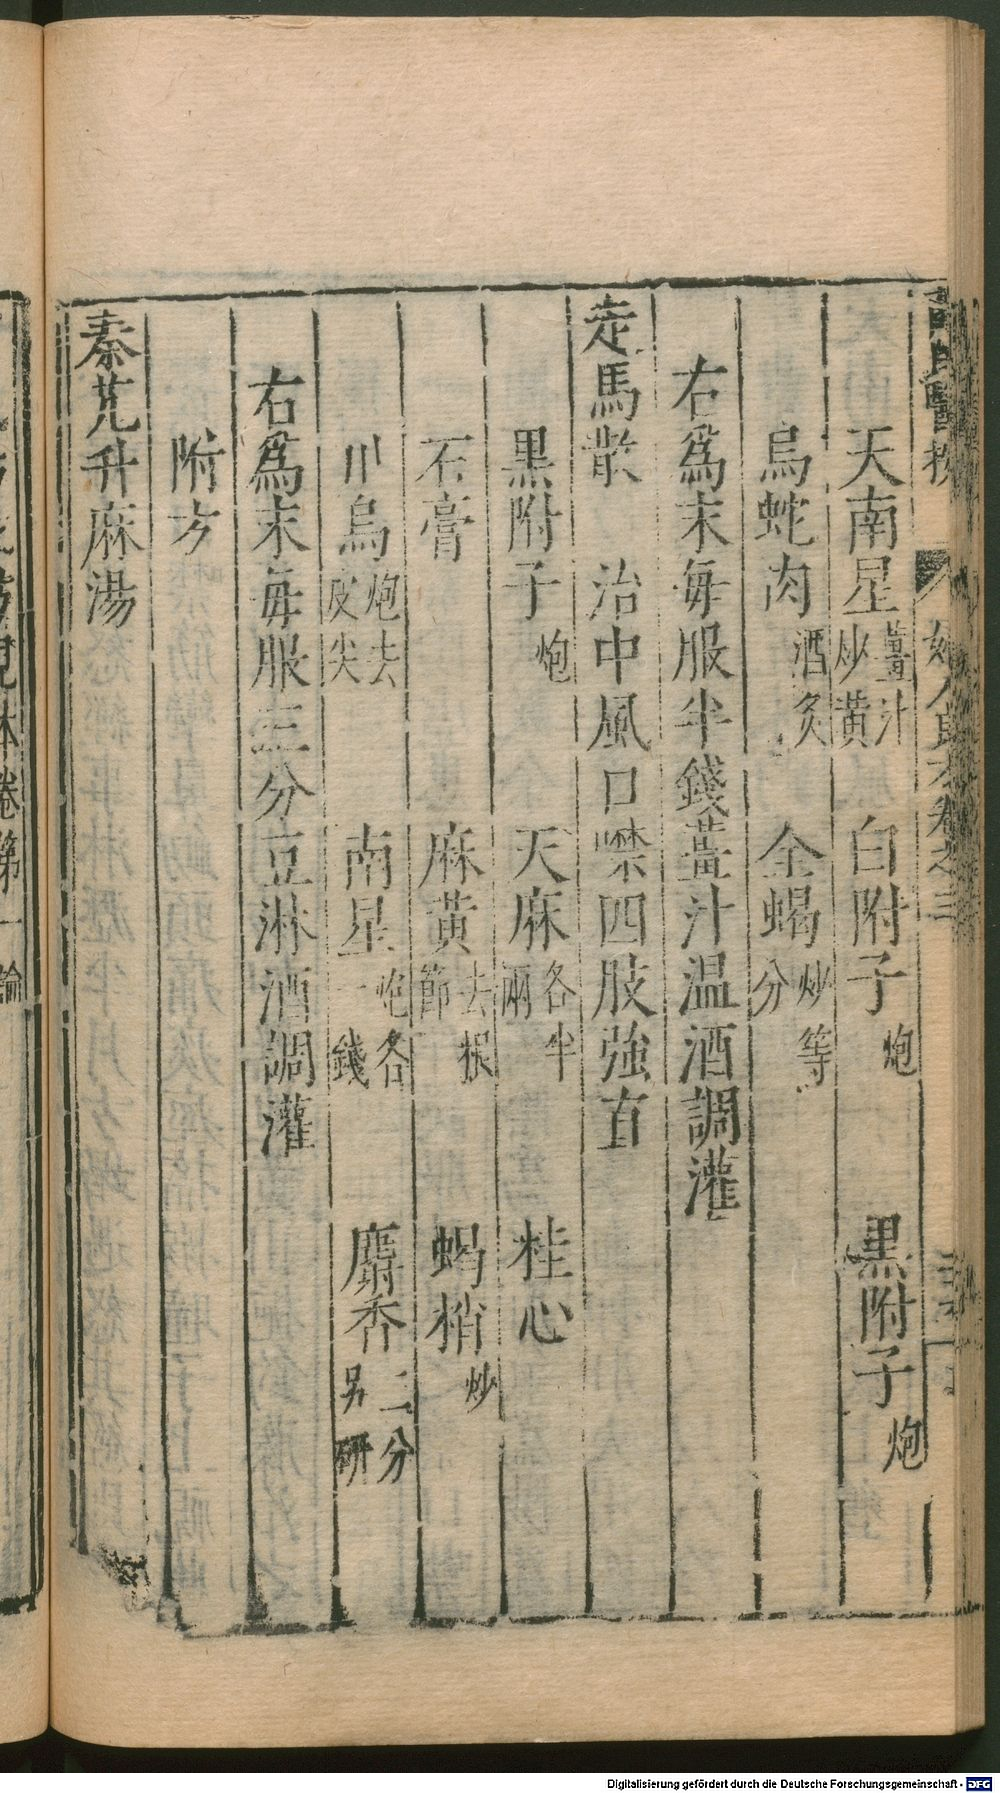 天南星薑汁炒黃 白附子炮 黑附子炮
烏蛇肉酒炙 全蝎炒等分
右爲末每服半錢薑汁温酒調灌
走馬散 治中風口噤四肢強直
黑附子炮 天麻各半兩 桂心
石膏 麻黃去根節 蝎梢炒
川烏炮去皮尖 南星炮各一錢 麝香二分另研
右爲末每服三分豆淋酒調灌
附方
秦艽升麻湯
卷第一
論
Digitalisierung gefördert durch die Deutsche Forschungsgemeinschaft - DFG